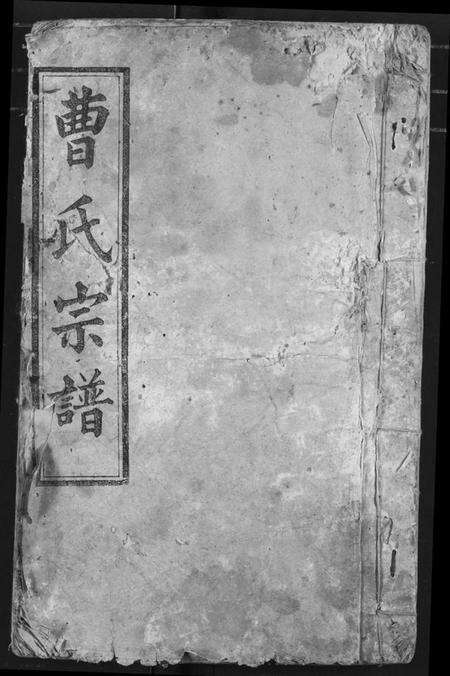 曹氏宗譜